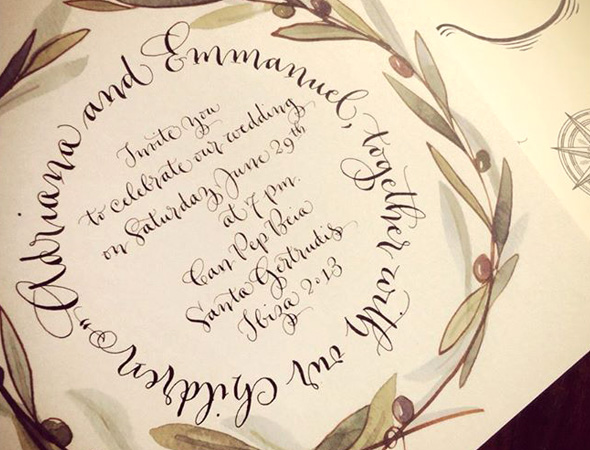 Adriana and Emmanuel, together with our children
Invite you
to celebrate our wedding
on Saturday, June 29th
at 7 pm.
Can Pep Beia
Santa Gertrudis
Ibiza 2013